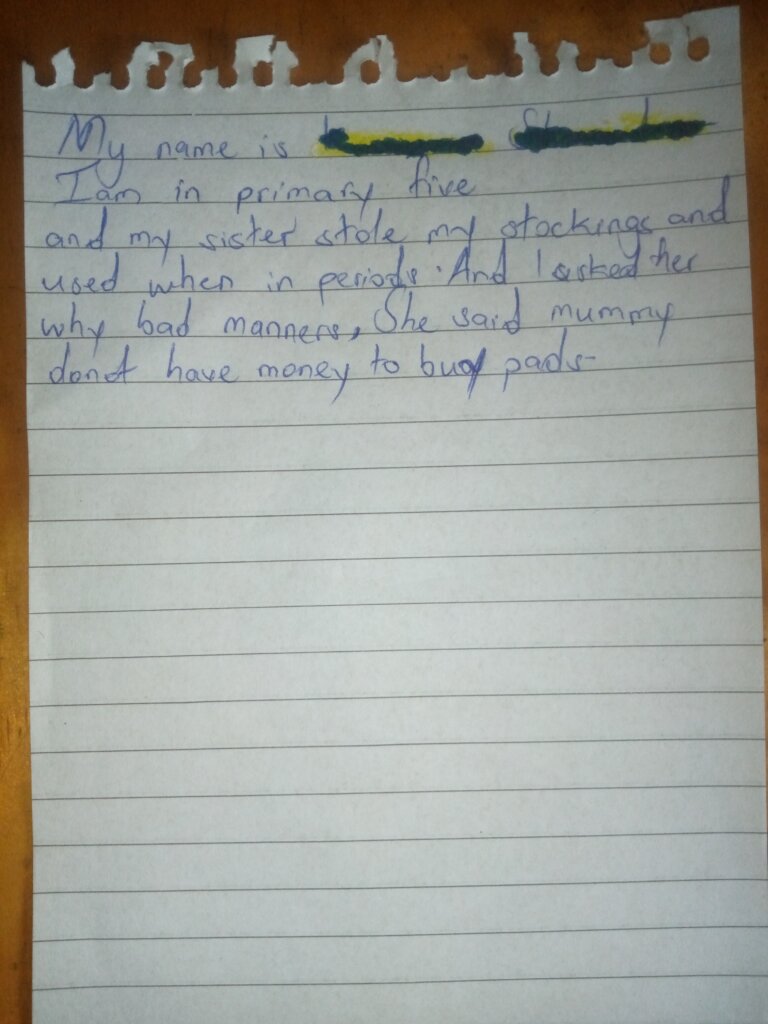 My name is
I am in primary five
and my sister stole my stockings and
used when in periods. And I asked her
why bad manners, She said mummy
donot have money to buy pads-